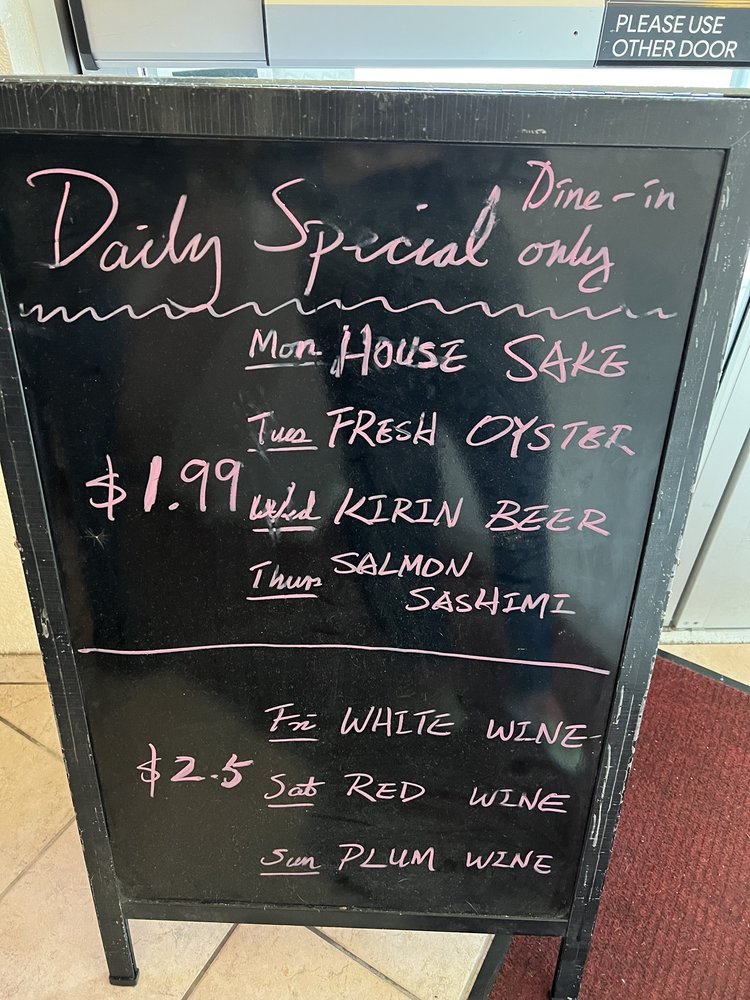 PLEASE USE
OTHER DOOR
Daily Special Dine-in
only
Mon HOUSE SAKE
Tues FRESH OYSTER
$1.99 Wed KIRIN BEER
Thurs SALMON
SASHIMI
Fri WHITE WINE
$2.5 Sat RED WINE
Sun PLUM WINE